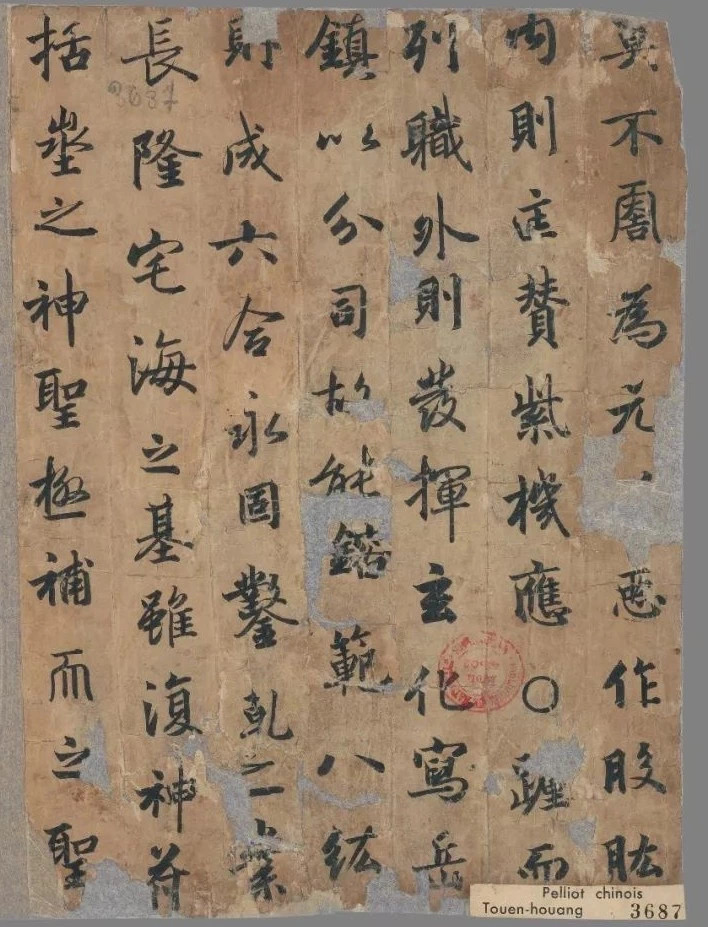 不為元作股肱
內則匡贊紫機應○躔而
列職外則發揮玄化寫岳
鎮以分司故能鎔範八紘
財成六合永固鑿乹之業
長隆宅海之基雖復神苻
括壑之神聖極補而之聖
3687
Pelliot chinois
Touen-houang 3687